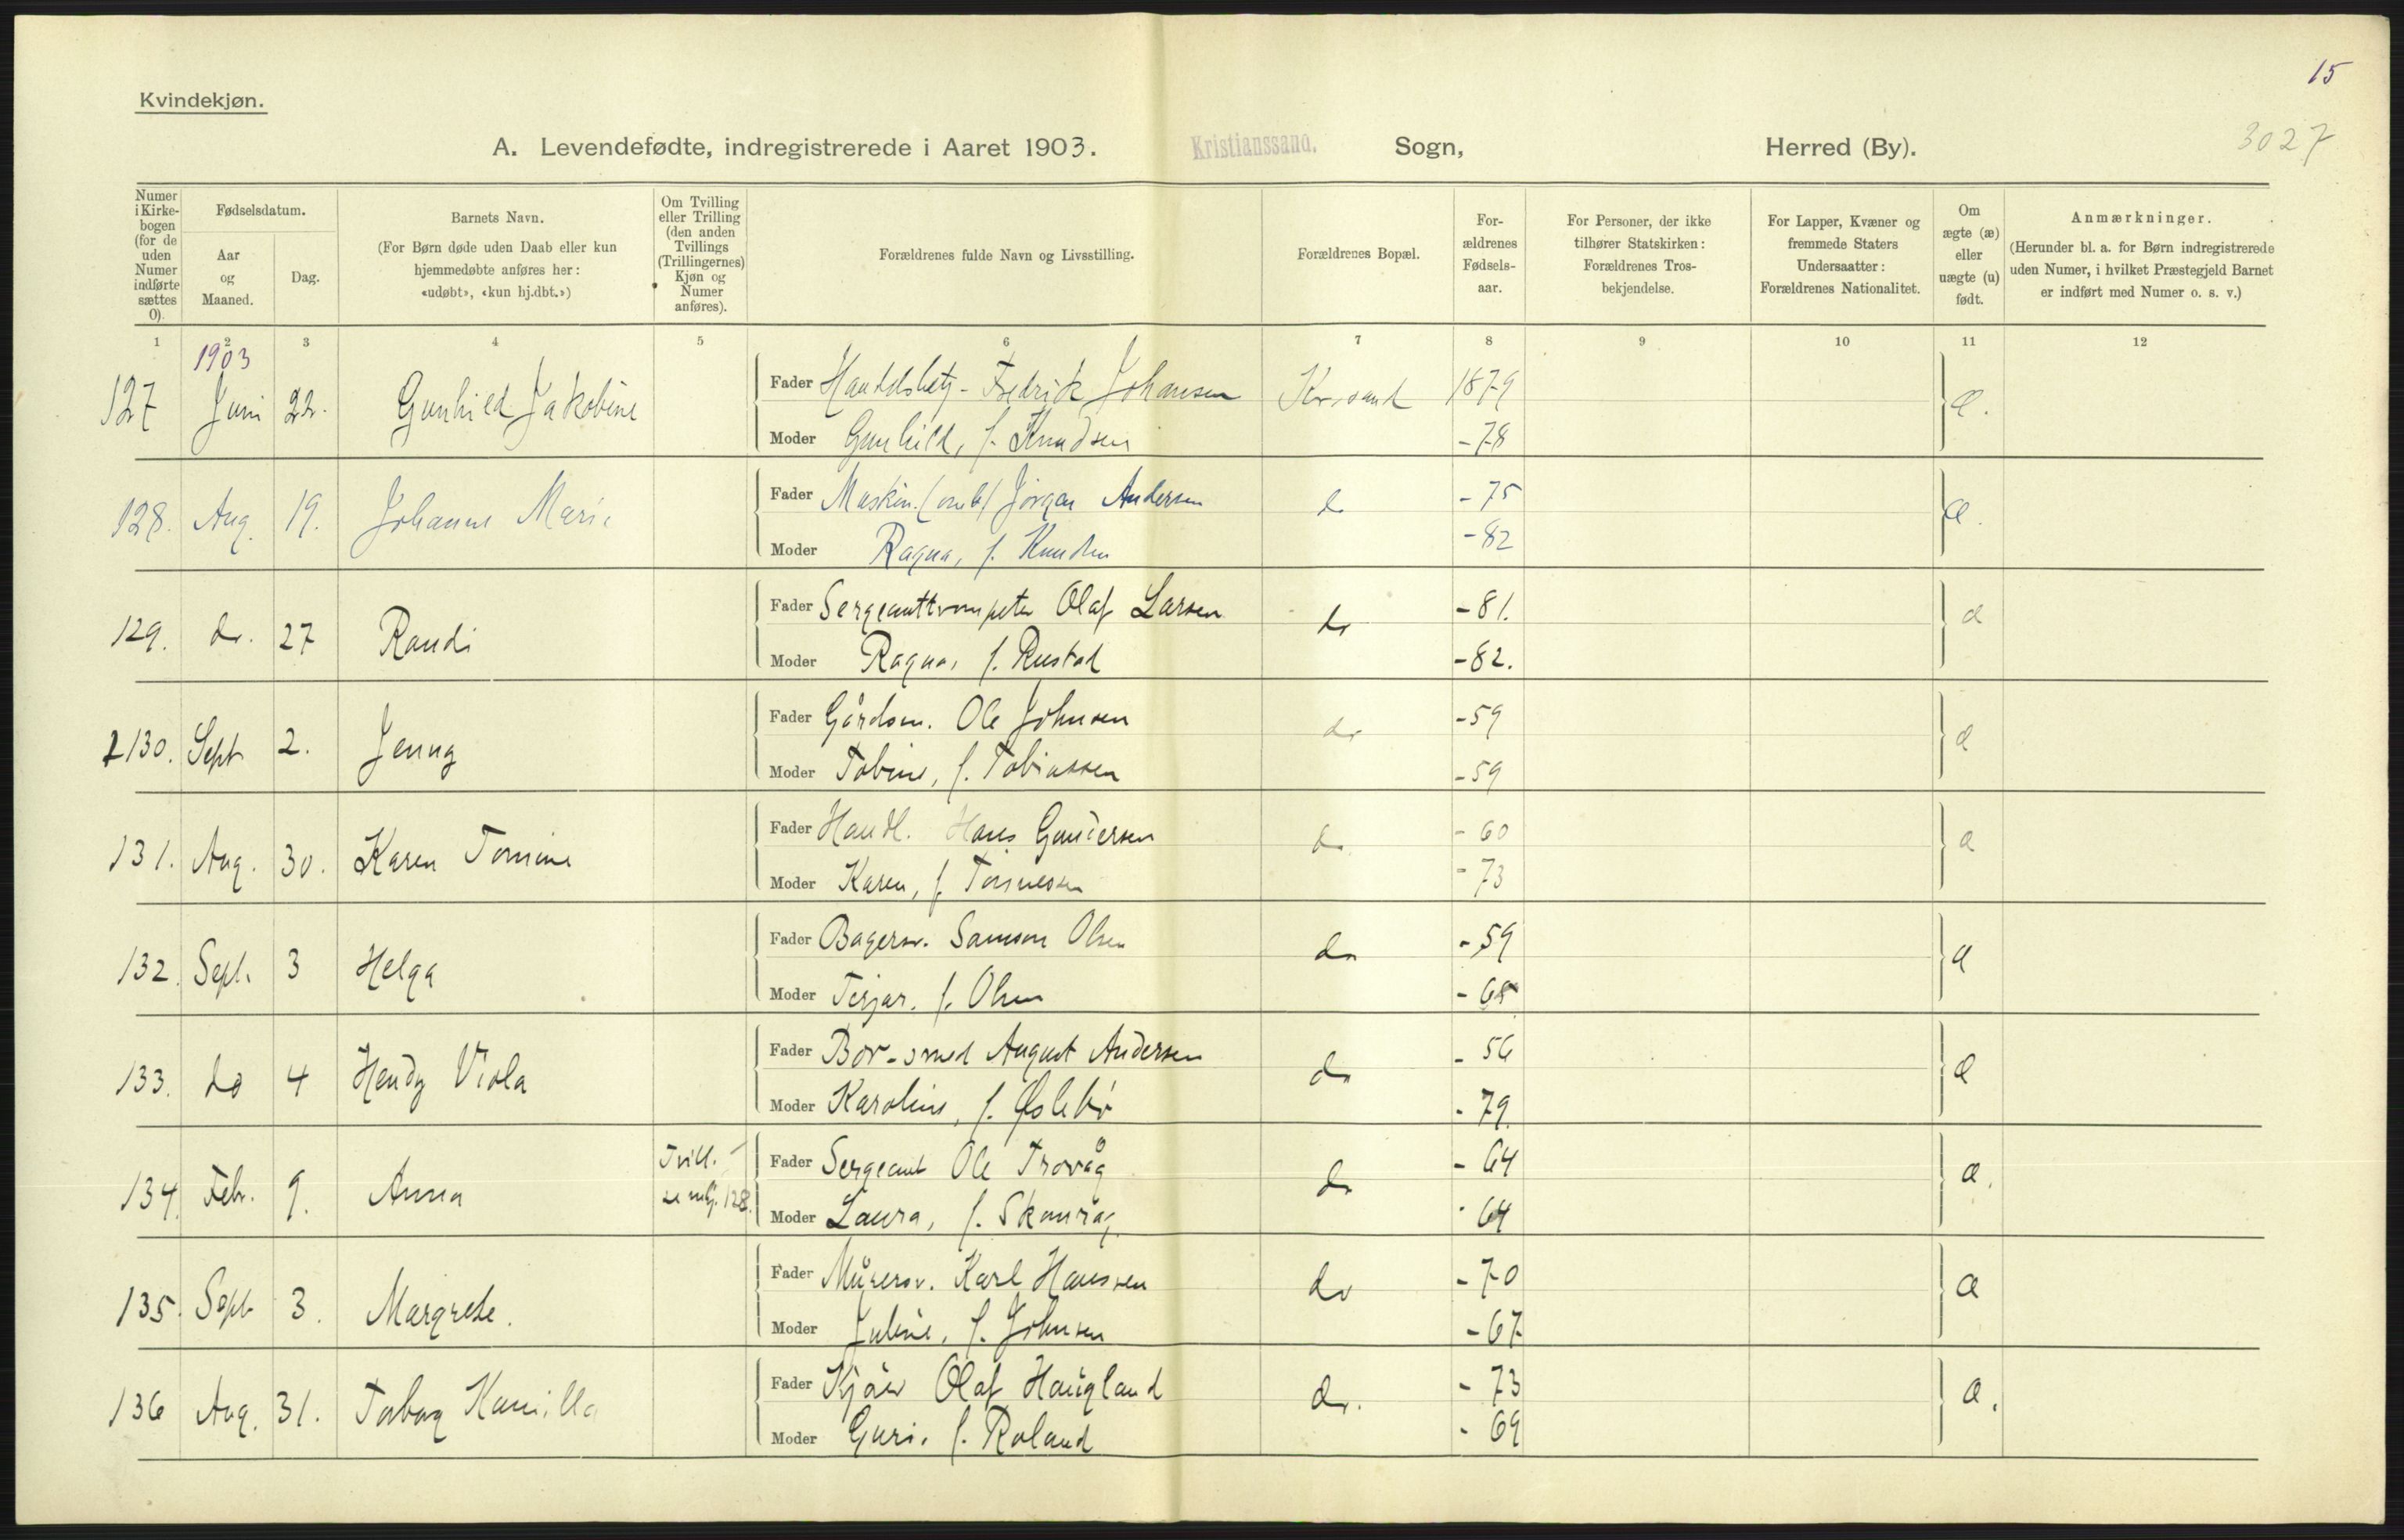 15
Kvindekjøn.
A. Levendefødte, indregistrerede i Aaret 1903. Kristianssand. Sogn, Herred (By). 3027
Numer i Kirkebogen (for de uden Numer indførte sættes 0).
Fødselsdatum.
Aar og Maaned.
Dag.
Barnets Navn.
(For Børn døde uden Daab eller kun
hjemmedøbte anføres her:
«udøbt», «kun hj.dbt.»)
Om Tvilling
eller Trilling
(den anden
Tvillings
(Trillingernes)
Kjøn og
Numer
anføres).
Forældrenes fulde Navn og Livsstilling.
Forældrenes Bopæl.
For-
ældrenes
Fødsels-
aar.
For Personer, der ikke
tilhører Statskirken:
Forældrenes Tros-
bekjendelse.
For Lapper, Kvæner og
fremmede Staters
Undersaatter:
Forældrenes Nationalitet.
Om
ægte (æ)
eller
uægte (u)
født.
Anmærkninger.
(Herunder bl. a. for Børn indregistrerede
uden Numer, i hvilket Præstegjeld Barnet
er indført med Numer o. s. v.)
1 2 3 4 5 6 7 8 9 10 11 12
1903
127 Juni 22. Gunhild Jakobine Fader Handelsbetj. Fredrik Johansen Kr.sand 1879 æ.
Moder Gunhild, f. Knudsen - 78
128. Aug. 19. Johanne Marie Fader Maskin. Jörgen Andersen do - 75 æ.
Moder Ragna, f. Knudsen - 82
129. do. 27 Randi Fader Sergeanttrompeter Olaf Larsen do - 81. æ
Moder Ragna, f. Rustad - 82.
130. Sept 2. Jenny Fader Gårdsm. Ole Johnsen do - 59 æ
Moder Tobine, f. Tobiassen - 59
131. Aug. 30. Karen Tomine Fader Handl. Hans Gundersen do - 60 æ
Moder Karen, f. - 73
132. Sept. 3 Helga Fader Bagersv. Samson Olsen do - 59 æ
Moder f. Olsen
133. do 4 Hendy Viola Fader August Andersen do - 56 æ
Moder Karoline, f. Øslebø - 79.
134. Febr. 9. Anna Tvill. Fader Sergeant Ole Trovåg do - 64 æ.
128. Moder Laura, f. - 64
135. Sept 3. Margrete. Fader Murersv. Karl Hanssen do - 70 æ
Moder Juline, f. Johnsen - 67
136 Aug. 31. Torborg Kamilla Fader Olaf Haugland do. - 73 æ.
Moder Guri, f. Roland - 69